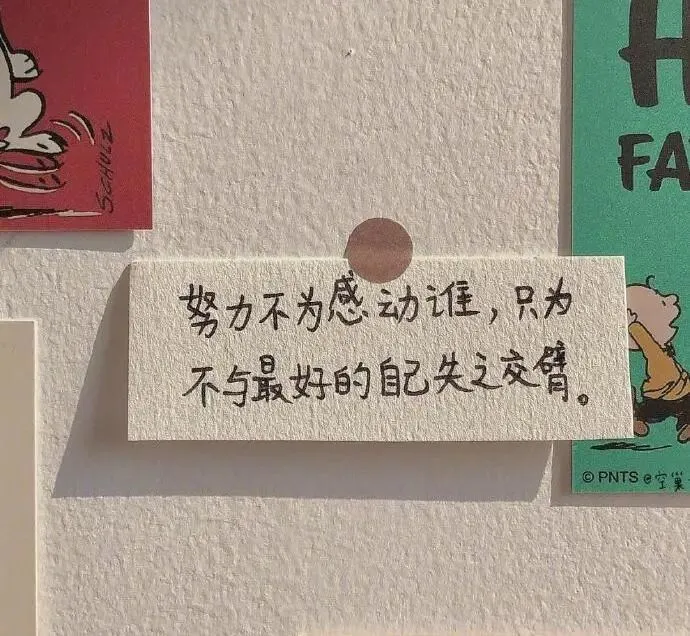 SCHULZ
H
FA
努力不为感动谁，只为
不与最好的自己失之交臂。
© PNTS @空巢